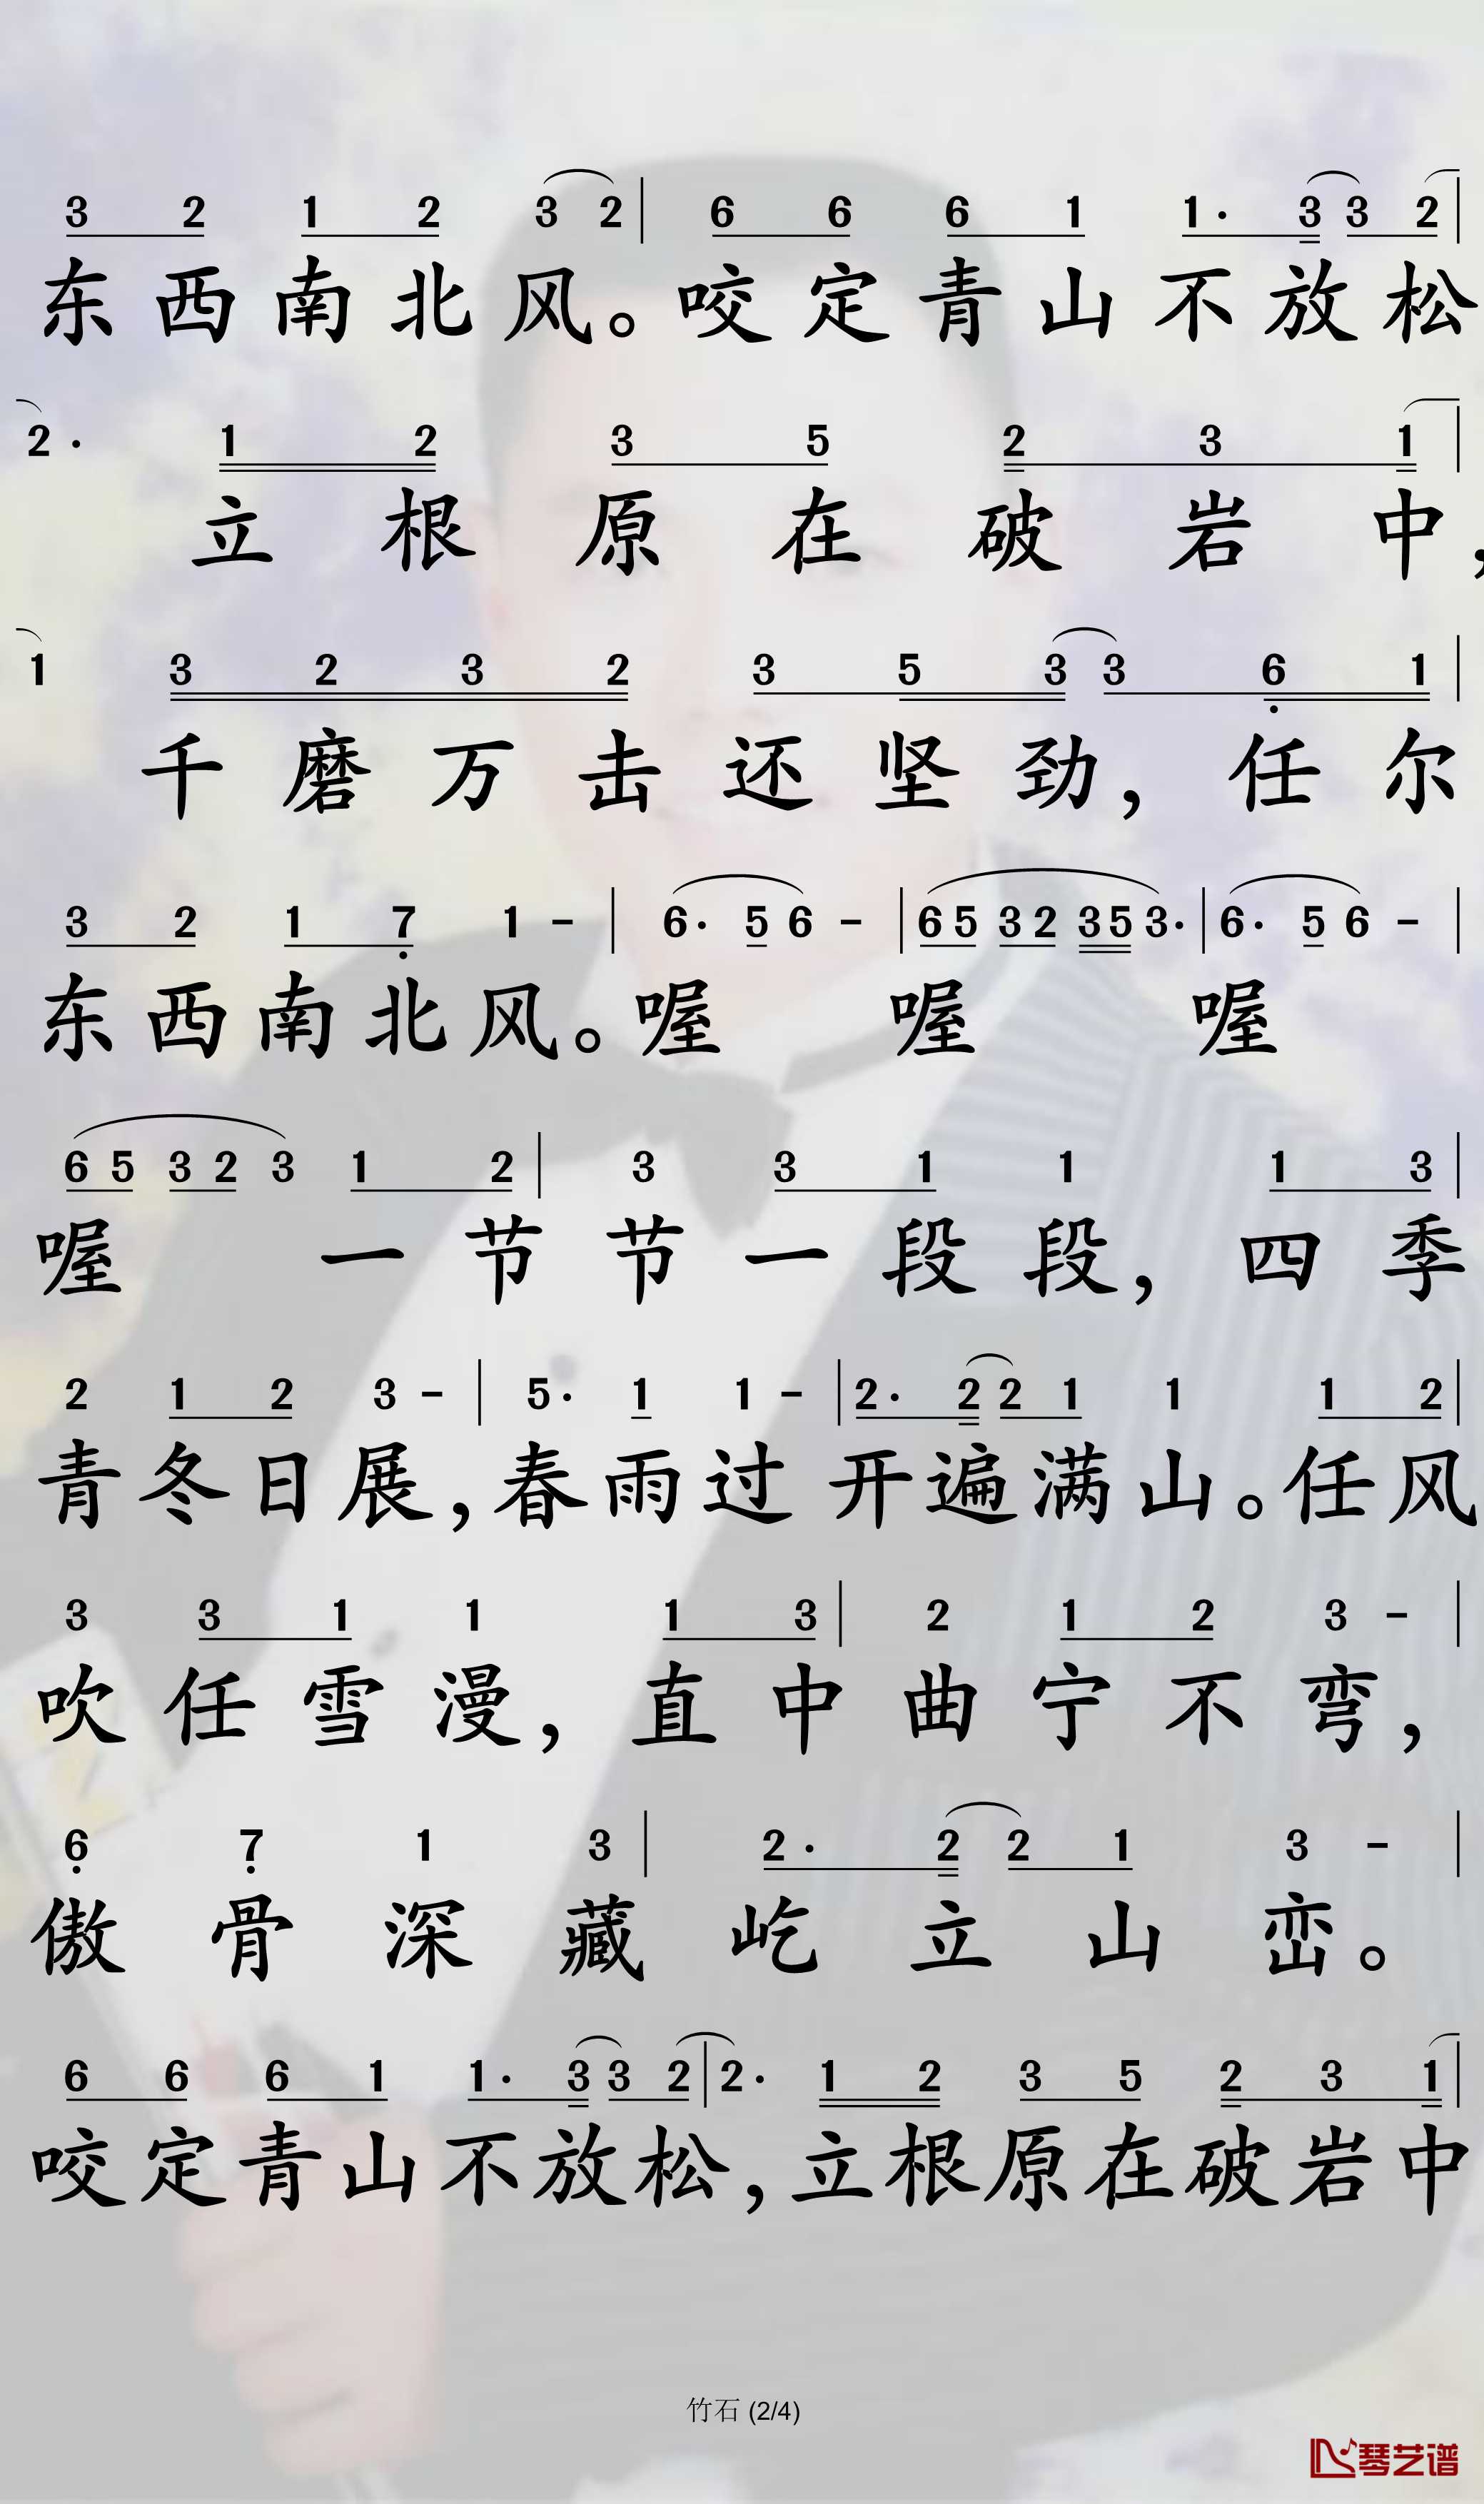 3 2 1 2 3 2 | 6 6 6 1 1· 3 3 2 |
东西南北风。咬定青山不放松
2· 1 2 3 5 2 3 1 |
立根原在破岩中，
1 3 2 3 2 3 5 3 3 6 1 |
千磨万击还坚劲，任尔
3 2 1 7 1 - | 6· 5 6 - | 6 5 3 2 3 5 3· | 6· 5 6 - |
东西南北风。喔喔喔
6 5 3 2 3 1 2 | 3 3 1 1 1 3 |
喔一节节一段段，四季
2 1 2 3 - | 5· 1 1 - | 2· 2 2 1 1 1 2 |
青冬日展，春雨过开遍满山。任风
3 3 1 1 1 3 | 2 1 2 3 - |
吹任雪漫，直中曲宁不弯，
6 7 1 3 | 2· 2 2 1 3 - |
傲骨深藏屹立山峦。
6 6 6 1 1· 3 3 2 | 2· 1 2 3 5 2 3 1 |
咬定青山不放松，立根原在破岩中
竹石 (2/4)
琴艺谱